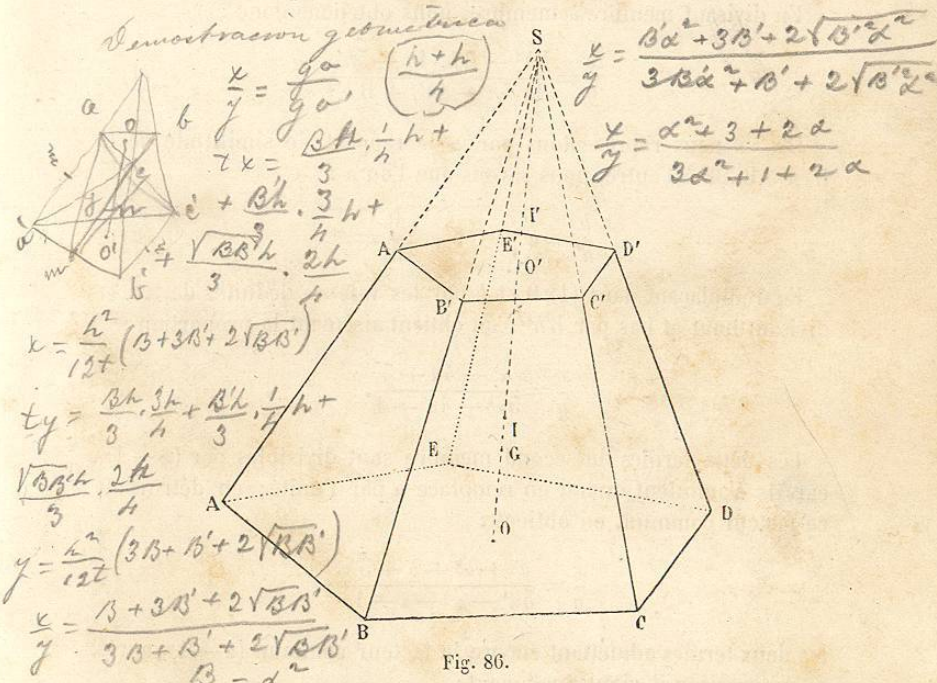 Demostracion geometrica
x/y = go/go'
(h+h)/4
t x = Bh/3 · 1/4 h +
+ B'h/3 · 3/4 h +
+ √BB' h/3 · 2h/4
x = h²/12t (B+3B'+2√BB')
ty = Bh/3 · 3h/4 + B'h/3 · 1/4 h +
√BB' h/3 · 2h/4
y = h²/12t (3B+B'+2√BB')
x/y = B+3B'+2√BB' / 3B+B'+2√BB'
B = α²
x/y = Bα²+3B'+2√B'²α² / 3B'α²+B'+2√B'²α²
x/y = α²+3+2α / 3α²+1+2α
a
o
b
e
m
g
n
c'
a'
m
o'
b'
S
I'
A
E'
D'
O'
B'
C'
I
E
G
A
D
O
B
C
Fig. 86.